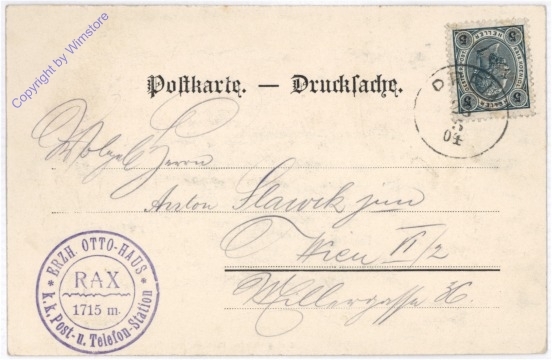 Copyright by Wimstore
Postkarte. — Drucksache.
3 HELLER 3
04
Wolgeb. Herrn
Anton Slawik jun
Wien II/2
ERZH. OTTO-HAUS
RAX
1715 m.
* k.k. Post- u. Telefon-Station *